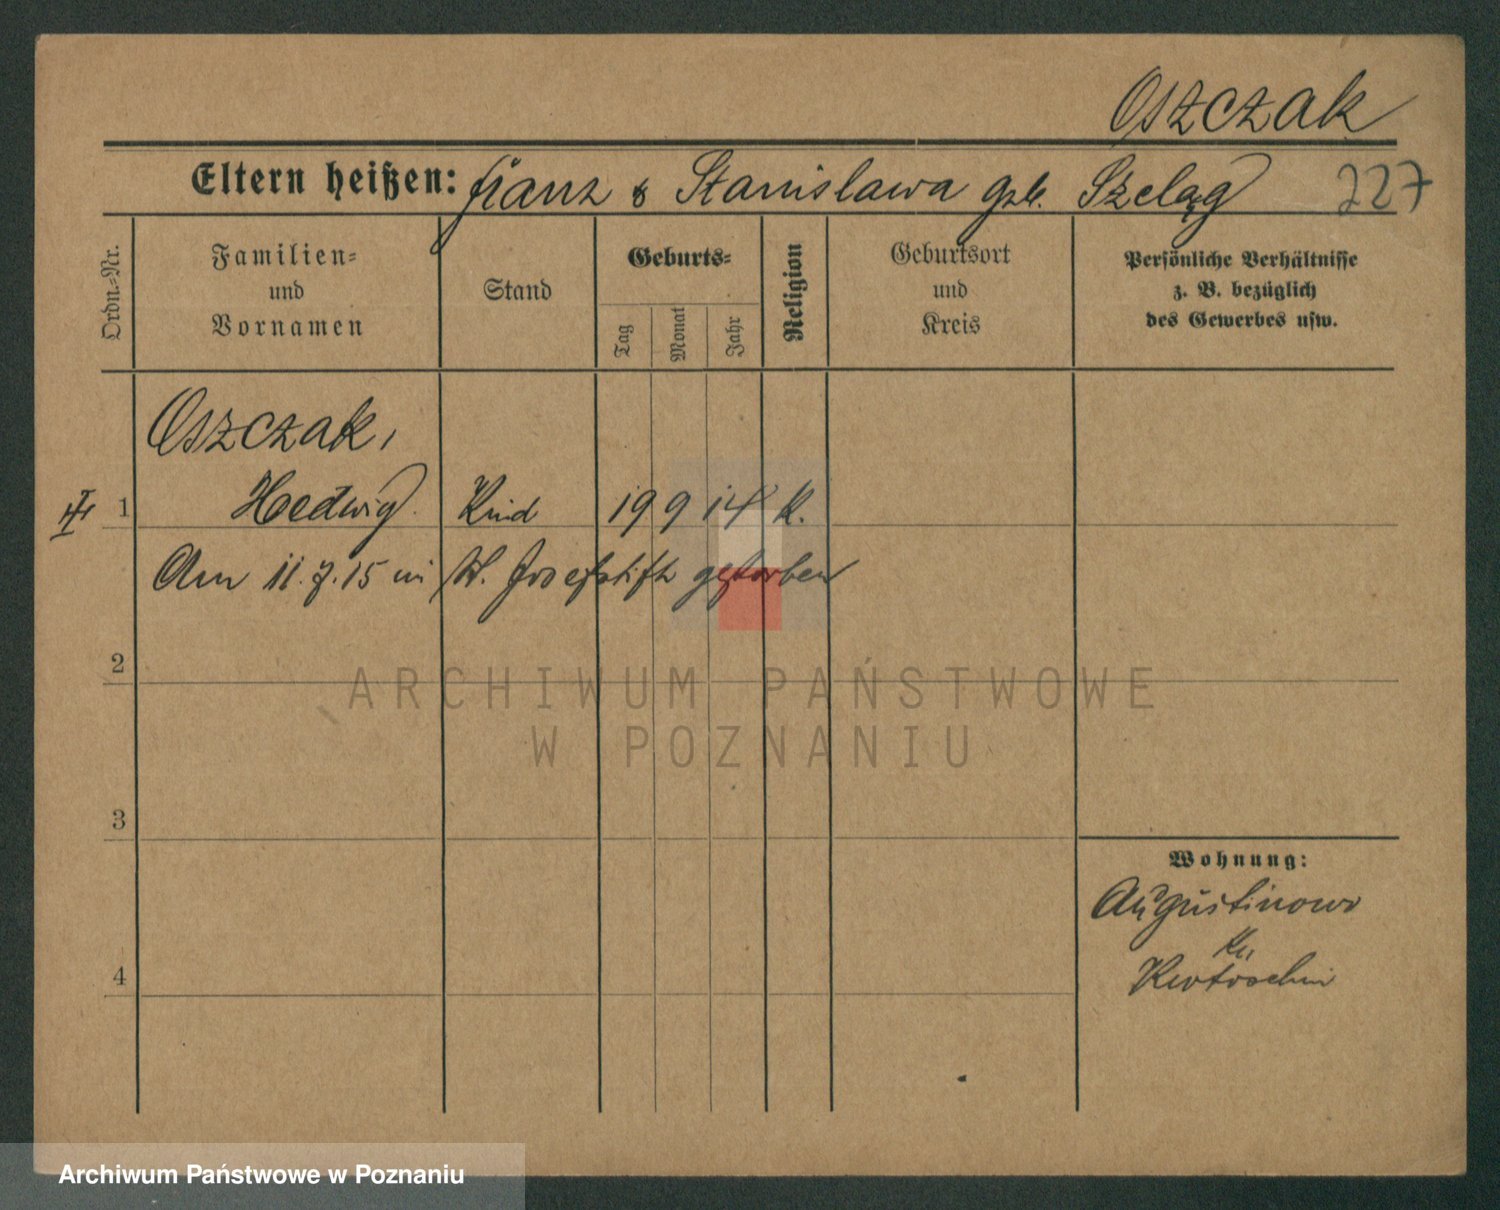 Oszczak
Eltern heißen: Franz & Stanislawa geb. Szeląg 227
Ordn.-Nr.
Familien-
und
Vornamen
Stand
Geburts-
Tag
Monat
Jahr
Religion
Geburtsort
und
Kreis
Persönliche Verhältnisse
z. B. bezüglich
des Gewerbes usw.
Oszczak,
1 Hedwig. Kind 19 9 14 K.
Am 11.7.15 in St. Josefstift gestorben
2
ARCHIWUM PAŃSTWOWE
W POZNANIU
3
Wohnung:
Augustinowo
Kr.
4
Krotoschin
Archiwum Państwowe w Poznaniu